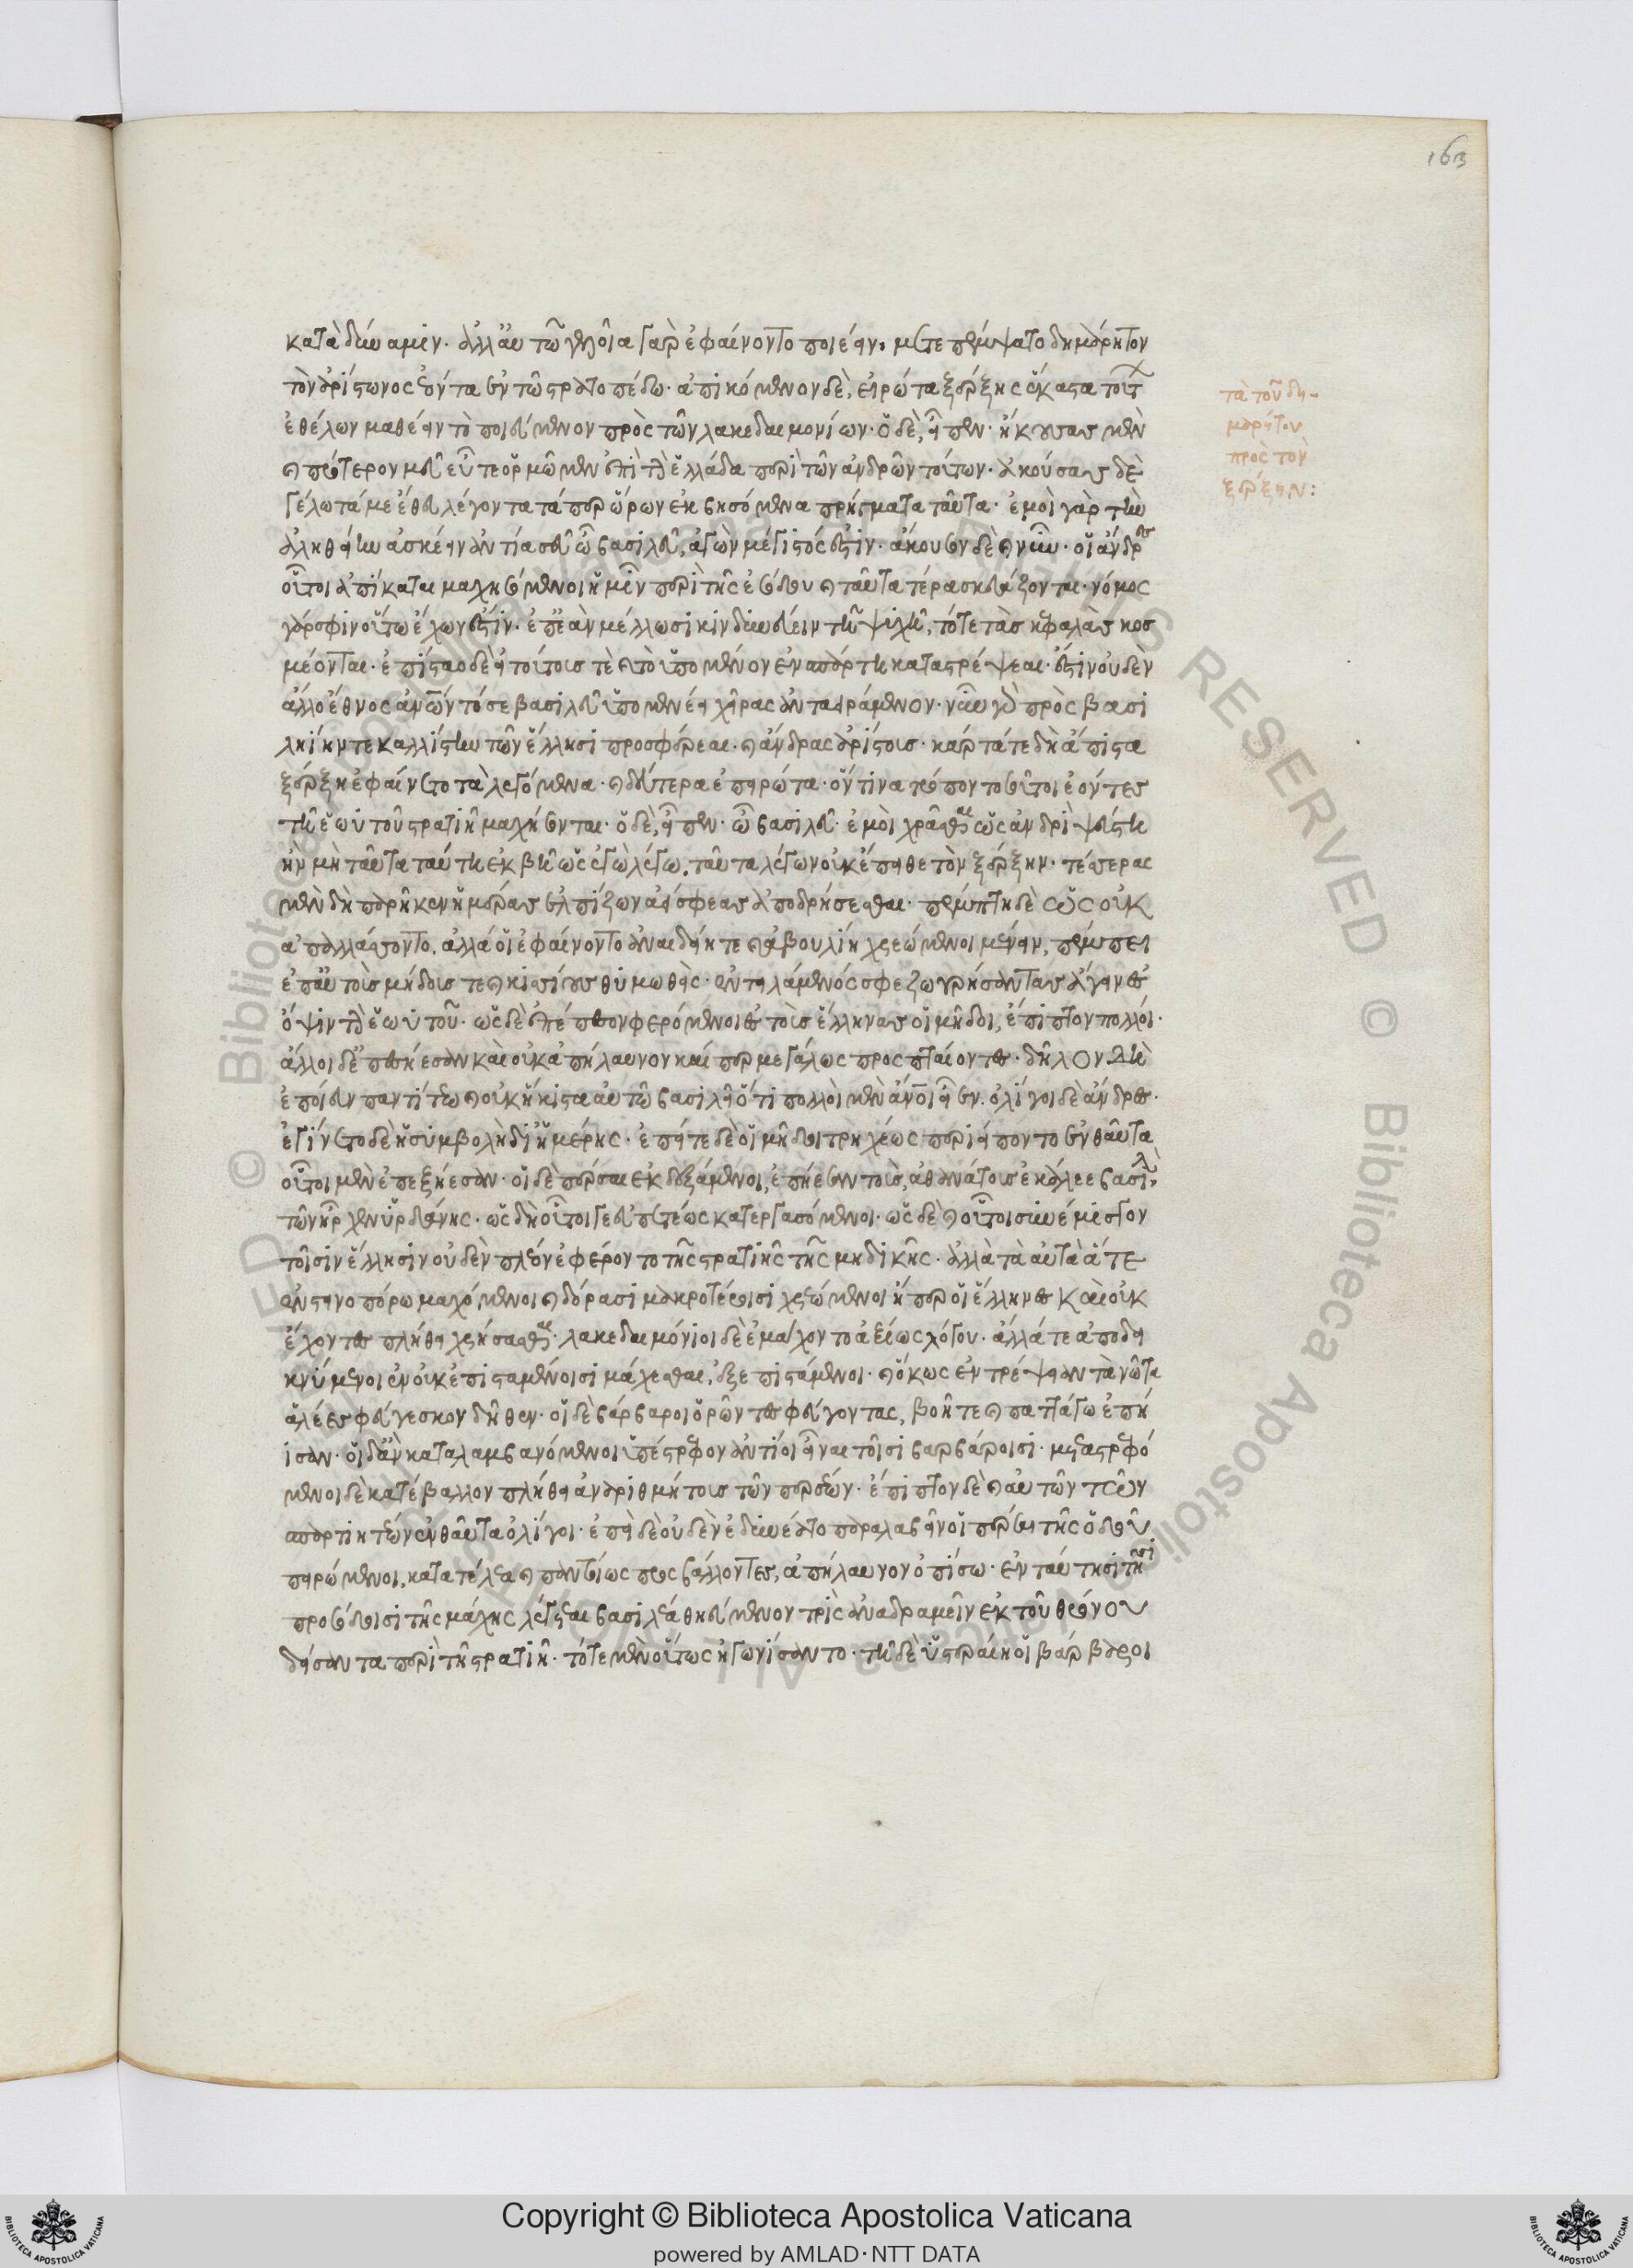 163
κατὰ δύναμιν. ἀλλ' αὐτῷ γελοῖα γὰρ ἐφαίνοντο ποιέειν, μετεπέμψατο δημάρητον
τὸν ἀρίστωνος ἐόντα ἐν τῷ στρατοπέδω. ἀπικόμενον δὲ, εἰρώτα ξέρξης ἕκαστα τούτων
ἐθέλων μαθέειν τὸ ποιεύμενον πρὸς τῶν λακεδαιμονίων. ὁ δὲ, εἶπεν. ἤκουσας μὲν
καὶ πρότερον μεῦ εὖτε ὁρμῶμεν ἐπὶ τὴν ἑλλάδα περὶ τῶν ἀνδρῶν τούτων. ἀκούσας δὲ
γέλωτά με ἔθευ λέγοντα τάπερ ὥρων ἐκβησόμενα πρήγματα ταῦτα. ἐμοὶ γὰρ τὴν
ἀληθείην ἀσκέειν ἀντία σεῦ ὦ βασιλεῦ, ἀγὼν μέγιστός ἐστιν. ἄκουσον δὲ καὶ νῦν. οἱ ἄνδρες
οὗτοι ἀπίκαται μαχησόμενοι ἡμῖν περὶ τῆς ἐσόδου καὶ ταῦτα παρασκευάζονται. νόμος
γάρ σφιν οὕτω ἔχων ἐστίν. ἐπεὰν μέλλωσι κινδυνεύειν τῆ ψυχῆ, τότε τὰς κεφαλὰς κοσ
μέονται. ἐπίστασο δὲ εἰ τούτους τὲ καὶ τὸ ὑπομένον ἐν σπάρτη καταστρέψεαι. ἔστιν οὐδὲν
ἄλλο ἔθνος ἀνθρώπων τό σε βασιλεῦ ὑπομενέει χεῖρας ἀνταειράμενον. νῦν γὰρ πρὸς βασι
ληίην τε καλλίστην τῶν ἕλλησι προσφέρεαι. καὶ ἄνδρας ἀρίστους. κάρτα τε δὴ ἄπιστα
ξέρξη ἐφαίνετο τὰ λεγόμενα. καὶ δεύτερα ἐπειρώτα. ὅντινα τρόπον τοσοῦτοι ἐόντες
τῆ ἑωυτοῦ στρατιῆ μαχήσονται. ὁ δὲ, εἶπεν. ὦ βασιλεῦ. ἐμοὶ χρᾶσθαι ὡς ἀνδρὶ ψεύστη
ἢν μὴ ταῦτα ταύτη ἐκβῆ ὡς ἐγὼ λέγω. ταῦτα λέγων οὐκ ἔπειθε τὸν ξέρξην. τέσσερας
μὲν δὴ παρῆκεν ἡμέρας ἐλπίζων αἰεί σφεας ἀποδρήσεσθαι. πέμπτη δὲ ὡς οὐκ
ἀπαλλάσσοντο, ἀλλά οἱ ἐφαίνοντο ἀναιδείη τε καὶ ἀβουλίη χρεώμενοι μένειν, πέμπει
ἐπ' αὐτοὺς μήδους τε καὶ κισσίους θυμωθεὶς. ἐντειλάμενός σφε ζωγρήσαντας ἄγειν ἐς
ὄψιν τὴν ἑωυτοῦ. ὡς δὲ ἐπέπεσον φερόμενοι ἐς τοὺς ἕλληνας οἱ μῆδοι, ἔπιπτον πολλοί.
ἄλλοι δ' ἐπεσήεσαν καὶ οὐκ ἀπήλαυνον καί περ μεγάλως προσπταίοντες. δῆλον δὲ
ἐποίευν παντί τεω καὶ οὐκ ἥκιστα αὐτῷ βασιλεῖ ὅτι πολλοὶ μὲν ἄνθρωποι εἶεν. ὀλίγοι δὲ ἄνδρες.
ἐγίνετο δὲ ἡ συμβολὴ δι' ἡμέρης. ἐπείτε δὲ οἱ μῆδοι τρηχέως περιείποντο ἐνθαῦτα
οὗτοι μὲν ἐπεξήεσαν. οἱ δὲ πέρσαι ἐκδεξάμενοι, ἐπήεσαν τοὺς ἀθανάτους ἐκάλεε βασιλεὺς,
τῶν ἦρχεν ὑδάρνης. ὡς δὴ οὗτοι γε εὐπετέως κατεργασόμενοι. ὡς δὲ καὶ οὗτοι συνέμισγον
τοῖσιν ἕλλησιν οὐδὲν πλέον ἐφέροντο τῆς στρατιῆς τῆς μηδικῆς. ἀλλὰ τὰ αὐτὰ ἅτε
ἐν στεινοπόρω μαχόμενοι καὶ δόρασι μακροτέροισι χρεώμενοι ἤπερ οἱ ἕλληνες καὶ οὐκ
ἔχοντες πλήθει χρήσασθαι. λακεδαιμόνιοι δὲ ἐμάχοντο ἀξίως λόγου. ἄλλά τε ἀποδει
κνύμενοι ἐν οὐκ ἐπισταμένοισι μάχεσθαι, ἐξεπιστάμενοι. καὶ ὅκως ἐντρέψειαν τὰ νῶτα
ἁλέες φεύγεσκον δῆθεν. οἱ δὲ βάρβαροι ὁρῶντες φεύγοντας, βοῆ τε καὶ πατάγω ἐπή
ισαν. οἱ δ' ἂν καταλαμβανόμενοι ὑπέστρεφον ἀντίοι εἶναι τοῖσι βαρβάροισι. μεταστρεφό
μενοι δὲ κατέβαλλον πλήθει ἀναριθμήτους τῶν περσέων. ἔπιπτον δὲ καὶ αὐτῶν τῶν
σπαρτιητέων ἐνθαῦτα ὀλίγοι. ἐπεὶ δὲ οὐδὲν ἐδυνέατο παραλαβεῖν οἱ πέρσαι τῆς ὁδοῦ
πειρώμενοι, κατὰ τέλεα καὶ παντοίως προσβάλλοντες, ἀπήλαυνον ὀπίσω. ἐν ταύτησι τῆσι
προσόδοισι τῆς μάχης λέγεται βασιλέα θηεύμενον τρὶς ἀναδραμεῖν ἐκ τοῦ θρόνου
δείσαντα περὶ τῆ στρατιῆ. τότε μὲν οὕτως ἠγωνίσαντο. τῆ δὲ ὑστεραίη οἱ βάρβαροι
τὰ τοῦ δη-
μαρήτου
πρὸς τὸν
ξέρξην:
Copyright © Biblioteca Apostolica Vaticana
powered by AMLAD·NTT DATA